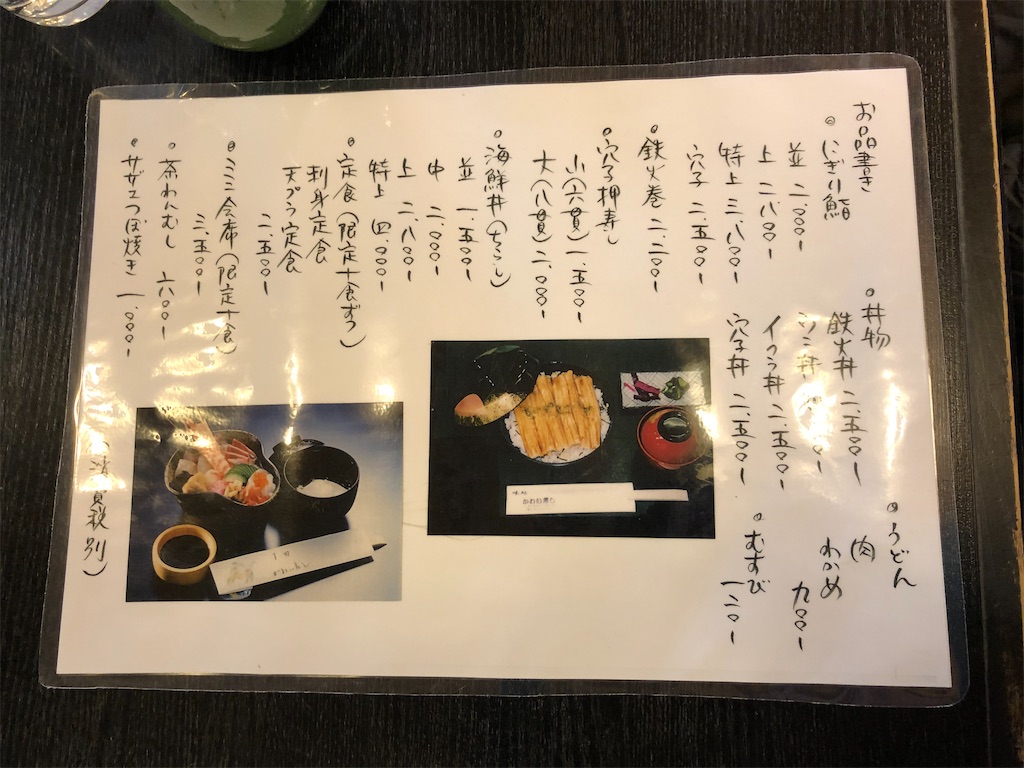 お品書き
◎にぎり鮨
並 二、〇〇〇ー
上 二、八〇〇ー
特上 三、八〇〇ー
穴子 二、五〇〇ー
◦鉄火巻 二、二〇〇ー
◦穴子押寿し
小（六貫）一、五〇〇ー
大（八貫）二、〇〇〇ー
◦海鮮丼（ちらし）
並 一、五〇〇ー
中 二、〇〇〇ー
上 二、八〇〇ー
特上 四、〇〇〇ー
◎定食（限定十食ずつ）
刺身定食
天プラ定食
二、五〇〇ー
◎ミニ会席（限定十食）
三、五〇〇ー
◦茶わんむし 六〇〇ー
◦サザエつぼ焼き 一、〇〇〇ー
◦丼物
鉄火丼 二、五〇〇ー
ウニ丼
イクラ丼 二、五〇〇ー
穴子丼 二、五〇〇ー
◦うどん
肉
わかめ
九〇〇ー
◦むすび
一二〇ー
税別）